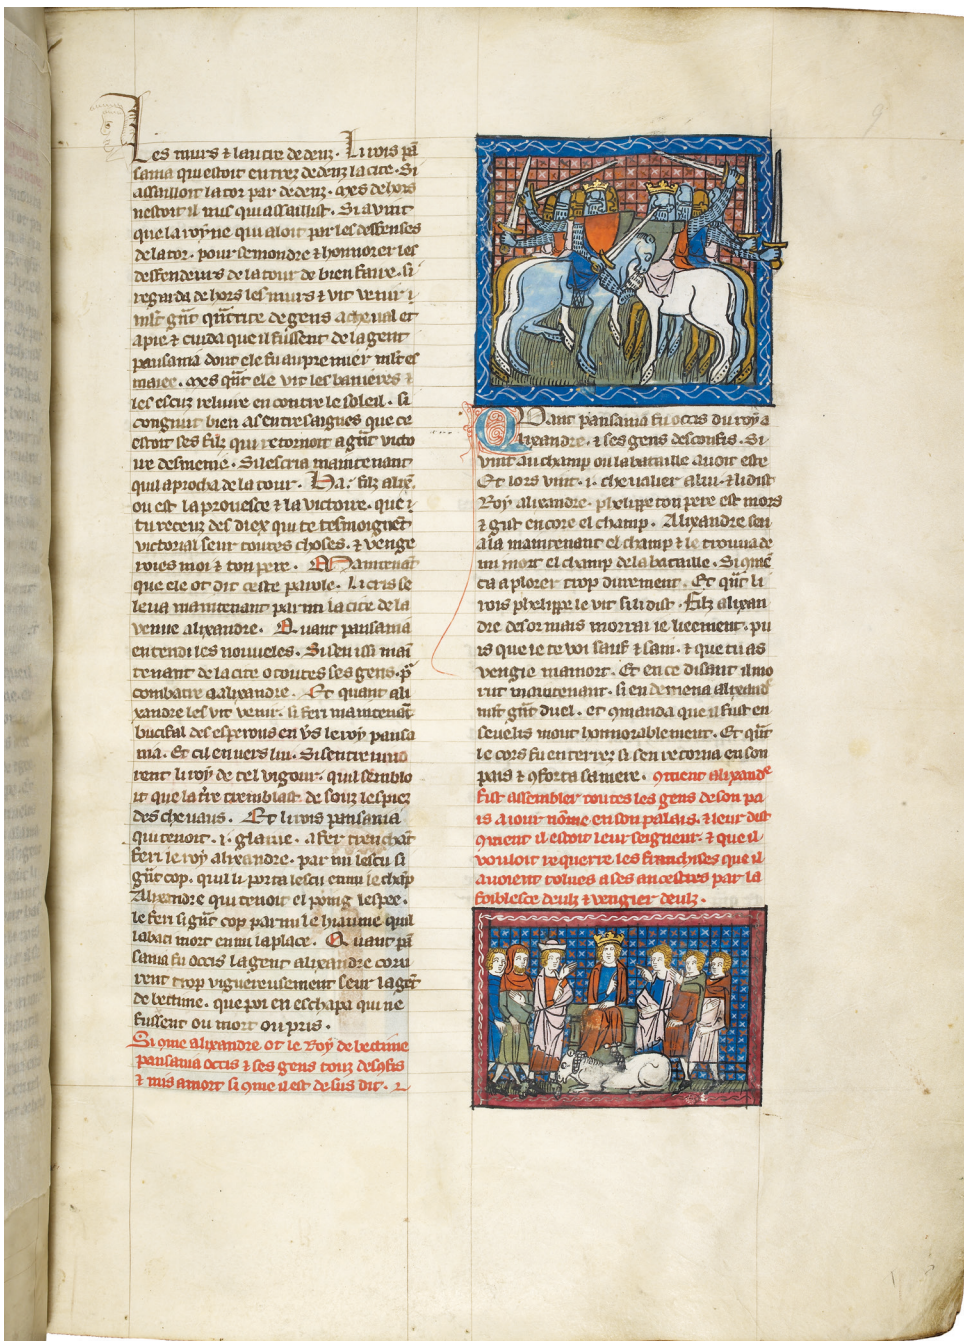 Les murs & lautre dedenz. Li rois pā
sania qui estoit entrez dedenz la cite. Si
assailloit la tor par dedenz. Mes dehors
nestoit il nus qui assaillist. Si auint
que la royne qui aloit par les deffenses
de la tor. pour semondre & honnorer les
deffendeurs de la tour de bien faire. si
regarda dehors les murs & vit venir .i.
mlt gñt qñtite de gens a cheual et
a pie & cuida que il fussent de la gent
pausania dont ele fu au premier mlt es
maiee. Mes qñt ele vit les banieres &
les escuz reluire encontre le soleil. si
congnut bien as entresaignes que ce
estoit ses filz qui retornoit a gñt victo
ire desmenie. Si lescria maintenant
quil aprocha de la tour. Ha. filz alix̄.
ou est la prouesce & la victoire. que
tu receuz des diex qui te tesmoignēt
victorial seur toutes choses. & venge
roies moi & ton pere. Maintenāt
que ele ot dit ceste parole. Li cris se
leua maintenant parmi la cite de la
venue alixandre. Quant pausania
entendi les nouueles. Si sen issi mai
tenant de la cite o toutes ses gens. pͬ
combatre a alixandre. Et quant ali
xandre les vit venir. si feri maintenāt
bucifal des esperons en v̄s le roy pausa
nia. Et cil enuers lui. Si sentreuin
rent li roy de tel vigour. quil semblo
it que la t̄re tremblast desouz les piez
des cheuaus. Et li rois pausania
qui tenoit .i. glaiue. a fer trenchāt
feri le roy alixandre. parmi lescu si
gñt cop. quil li porta lescu enmi le chāp
Alixandre qui tenoit el poing lespee.
le feri si gñt cop parmi le hiaume quil
labati mort enmi la place. Quant pā
sania fu occis la gent alixandre coru
rent trop viguereusement seur la gēt
de bettinie. que poi en eschapa qui ne
fussent ou mort ou pris.
Si 9me alixandre ot le Roy de bettinie
pausania occis & ses gens touz desc̄fis
& mis a mort si 9me il est desus dit.
Quant pausania fu occis du roy a
lixandre. & ses gens desconfis. Si
vint au champ ou la bataille auoit este
Et lors vint .i. cheualier a lui. & li dist
Roy alixandre. phelippe ton pere est mors
& gist encore el champ. Alixandre sen
ala maintenant el champ & le trouua de
mi mort el champ de la bataille. Si 9mē
ca a plorer trop durement. Et qñt li
rois phelippe le vit si li dist. Filz alixan
dre desormais morrai ie lieement. pu
is que ie te voi sauf & sain. & que tu as
vengie ma mort. Et en ce disant il mo
rut maintenant. si en demena alixand̄
mlt gñt duel. et 9manda que il fust en
seuelis moult honnorablement. Et qñt
le cors fu enterrez si sen retorna en son
pais & 9forta sa mere. 9ment alixand̄e
fist assembler toutes les gens de son pa
is a iour nōme en son palais. & leur dist
9ment il estoit leur seigneur. & que il
vouloit requerre les franchises que il
auoient tolues a ses ancestres par la
foiblesce deulz & vengier deulz.